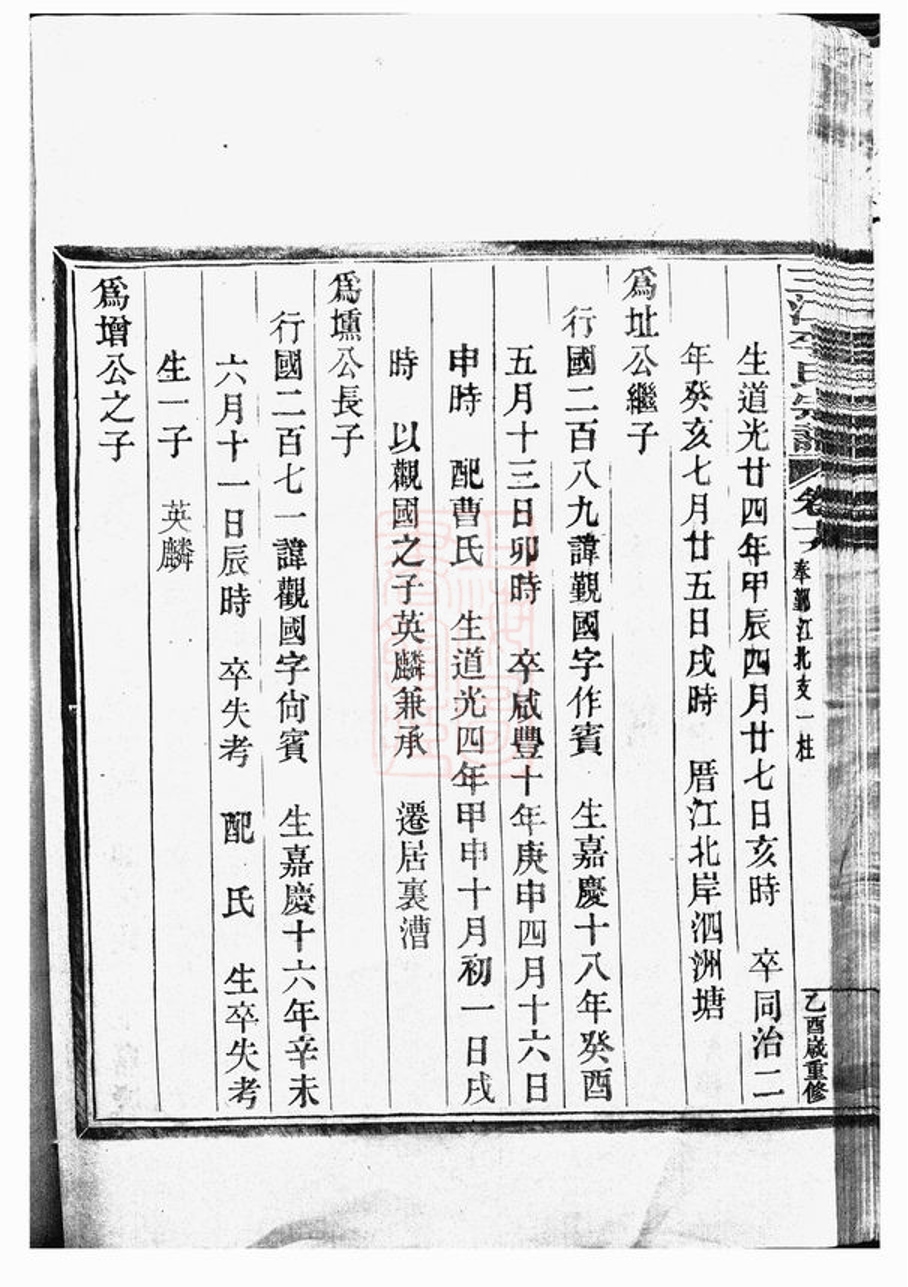 三江李氏宗譜
卷十
奉鄞江北支一柱
乙酉歲重修
生道光廿四年甲辰四月廿七日亥時　卒同治二
年癸亥七月廿五日戌時　厝江北岸泗洲塘
爲址公繼子
行國二百八九諱觀國字作賓　生嘉慶十八年癸酉
五月十三日卯時　卒咸豐十年庚申四月十六日
申時　配曹氏　生道光四年甲申十月初一日戌
時　以觀國之子英麟兼承　遷居裏漕
爲壎公長子
行國二百七一諱觀國字尙賓　生嘉慶十六年辛未
六月十一日辰時　卒失考　配　氏　生卒失考
生一子　英麟
爲增公之子